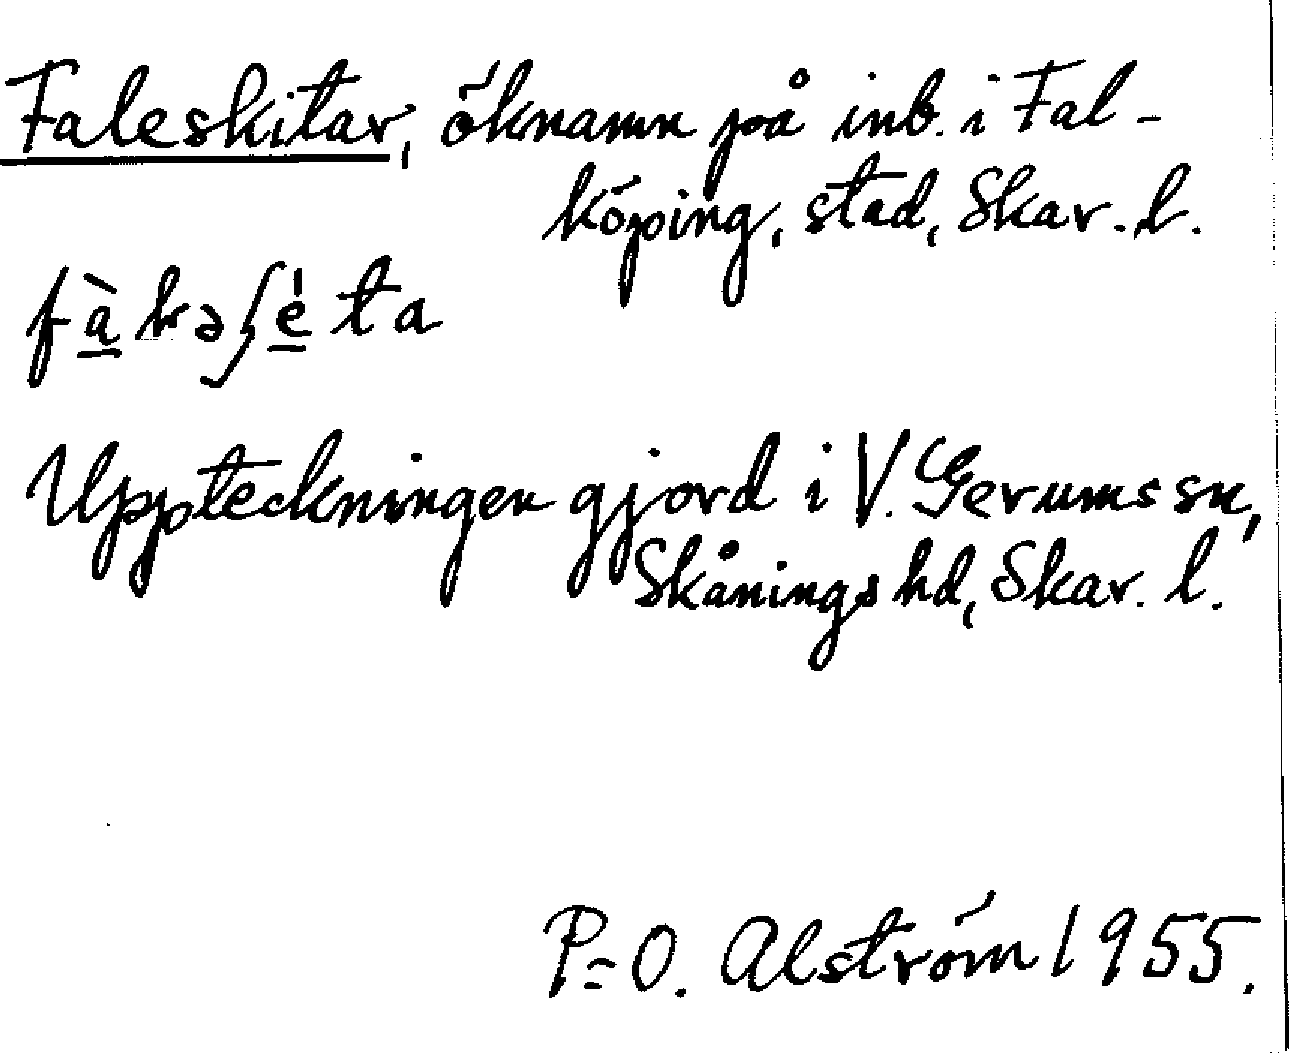 Faleskitar, öknamn på inb. i Fal-
köping, stad, Skar. l.
fàkəʃèta
Uppteckningen gjord i V. Gerums sn,
Skånings hd, Skar. l.
P-O. Alström 1955.